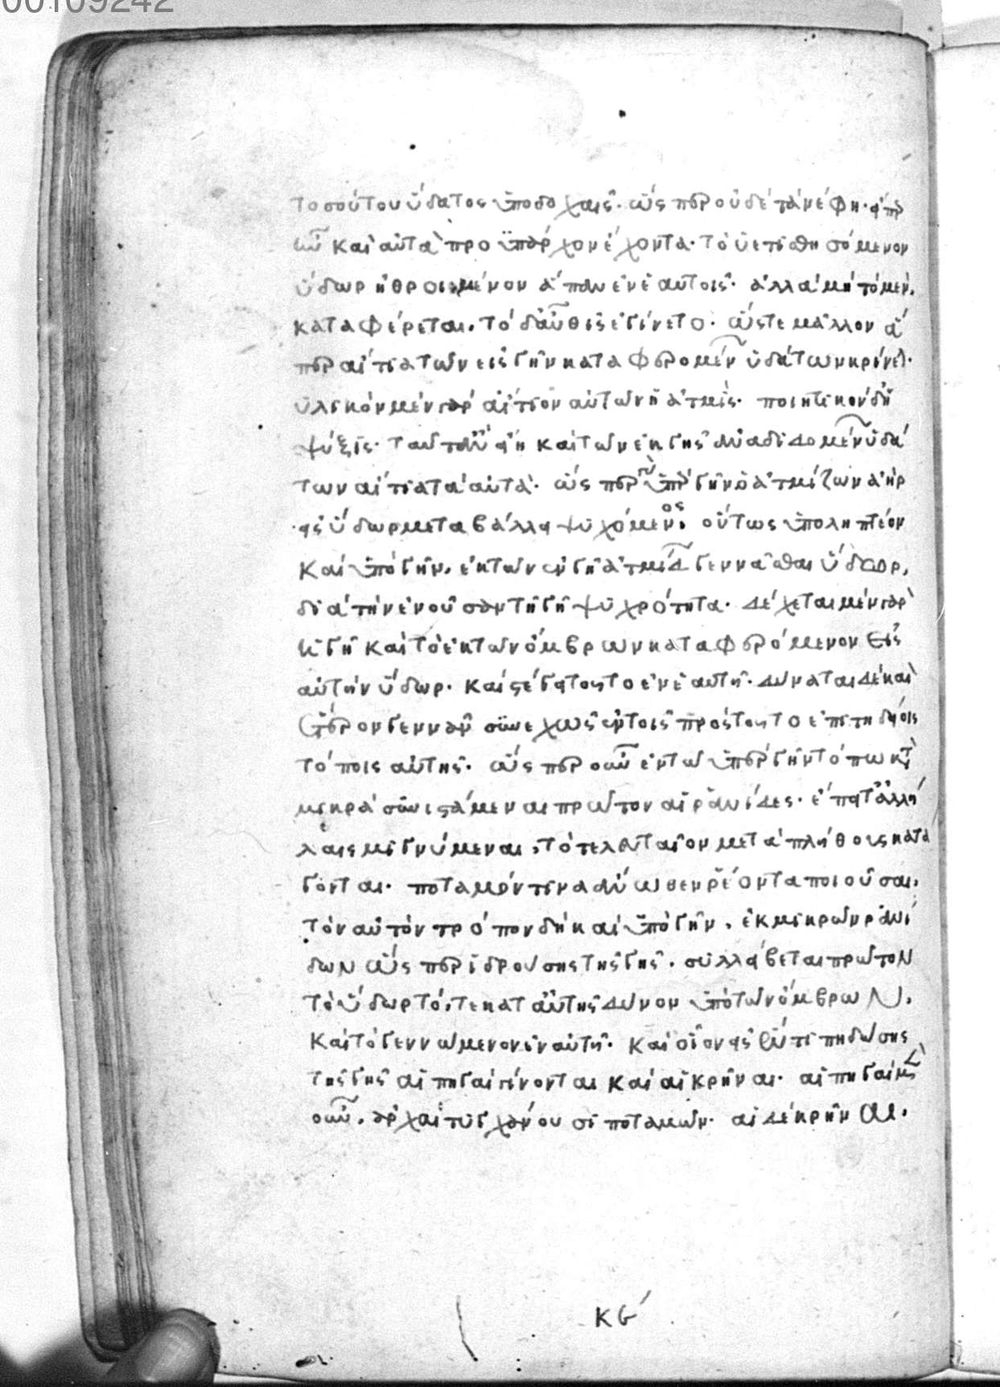 00109242
τοσούτου ὕδατος ὑποδοχαῖς. ὥσπερ οὐδὲ τὰ νέφη.
καὶ αὐτὰ προϋπάρχον ἔχοντα τὸ ὑετισθησόμενον
ὕδωρ ἠθροισμένον ἅπαν ἐν ἑαυτοῖς. ἀλλὰ μὴ τὸ μὲν
καταφέρεται, τὸ δ' αὖθις ἐγίνετο. ὥστε μᾶλλον ἅ
περ αἴτια τῶν εἰς γῆν καταφερομένων ὑδάτων κρίνει.
ὑλικὸν μὲν γὰρ αἴτιον αὐτῶν ἡ ἀτμίς. ποιητικὸν δὲ ἡ
ψύξις. ταῦτ' ἂν εἴη καὶ τῶν ἐκ γῆς ἀναδιδομένων ὑδά
των αἴτια τὰ αὐτά. ὥσπερ ὑπὲρ γῆν ὁ ἀτμίζων ἀὴρ
εἰς ὕδωρ μεταβάλλει ψυχόμενος, οὕτως ὑποληπτέον
καὶ ὑπὸ γῆν, ἐκ τῶν ἐν γῇ ἀτμίδων γεννᾶσθαι ὕδωρ,
διὰ τὴν ἐνοῦσαν τῇ γῇ ψυχρότητα. δέχεται μὲν γὰρ
ἡ γῆ καὶ τὸ ἐκ τῶν ὄμβρων καταφερόμενον εἰς
αὐτὴν ὕδωρ. καὶ στέγει τοῦτο ἐν ἑαυτῇ. δύναται δὲ καὶ
ἕτερον γεννᾶν συνεχῶς ἐν τοῖς πρὸς τοῦτο ἐπιτηδείοις
τόποις αὐτῆς. ὥσπερ οὖν ἐν τῷ ὑπὲρ γῆν τόπῳ κατὰ
μικρὰ συνιστάμεναι πρῶτον αἱ ῥανίδες. ἔπειτ' ἀλλή
λαις μιγνύμεναι, τὸ τελευταῖον μετὰ πλήθους κατά
γονται. ποταμόν τινα ἄνωθεν ῥέοντα ποιοῦσαι,
τὸν αὐτὸν τρόπον δὴ καὶ ὑπὸ γῆν, ἐκ μικρῶν ῥανί
δων ὥσπερ ἱδρούσης τῆς γῆς. συλλείβεται πρῶτον
τὸ ὕδωρ τό, τε κατ' αὐτῆς δῦνον ὑπὸ τῶν ὄμβρων,
καὶ τὸ γεννώμενον ἐν αὐτῇ. καὶ οἷον εἰς ἓν τι πηδώσης
τῆς γῆς αἱ πηγαὶ γίνονται καὶ αἱ κρῆναι. αἱ πηγαὶ μὲν
οὖν, ἀρχαὶ τυγχάνουσι ποταμῶν. αἱ δὲ κρῆναι.
κϛ´